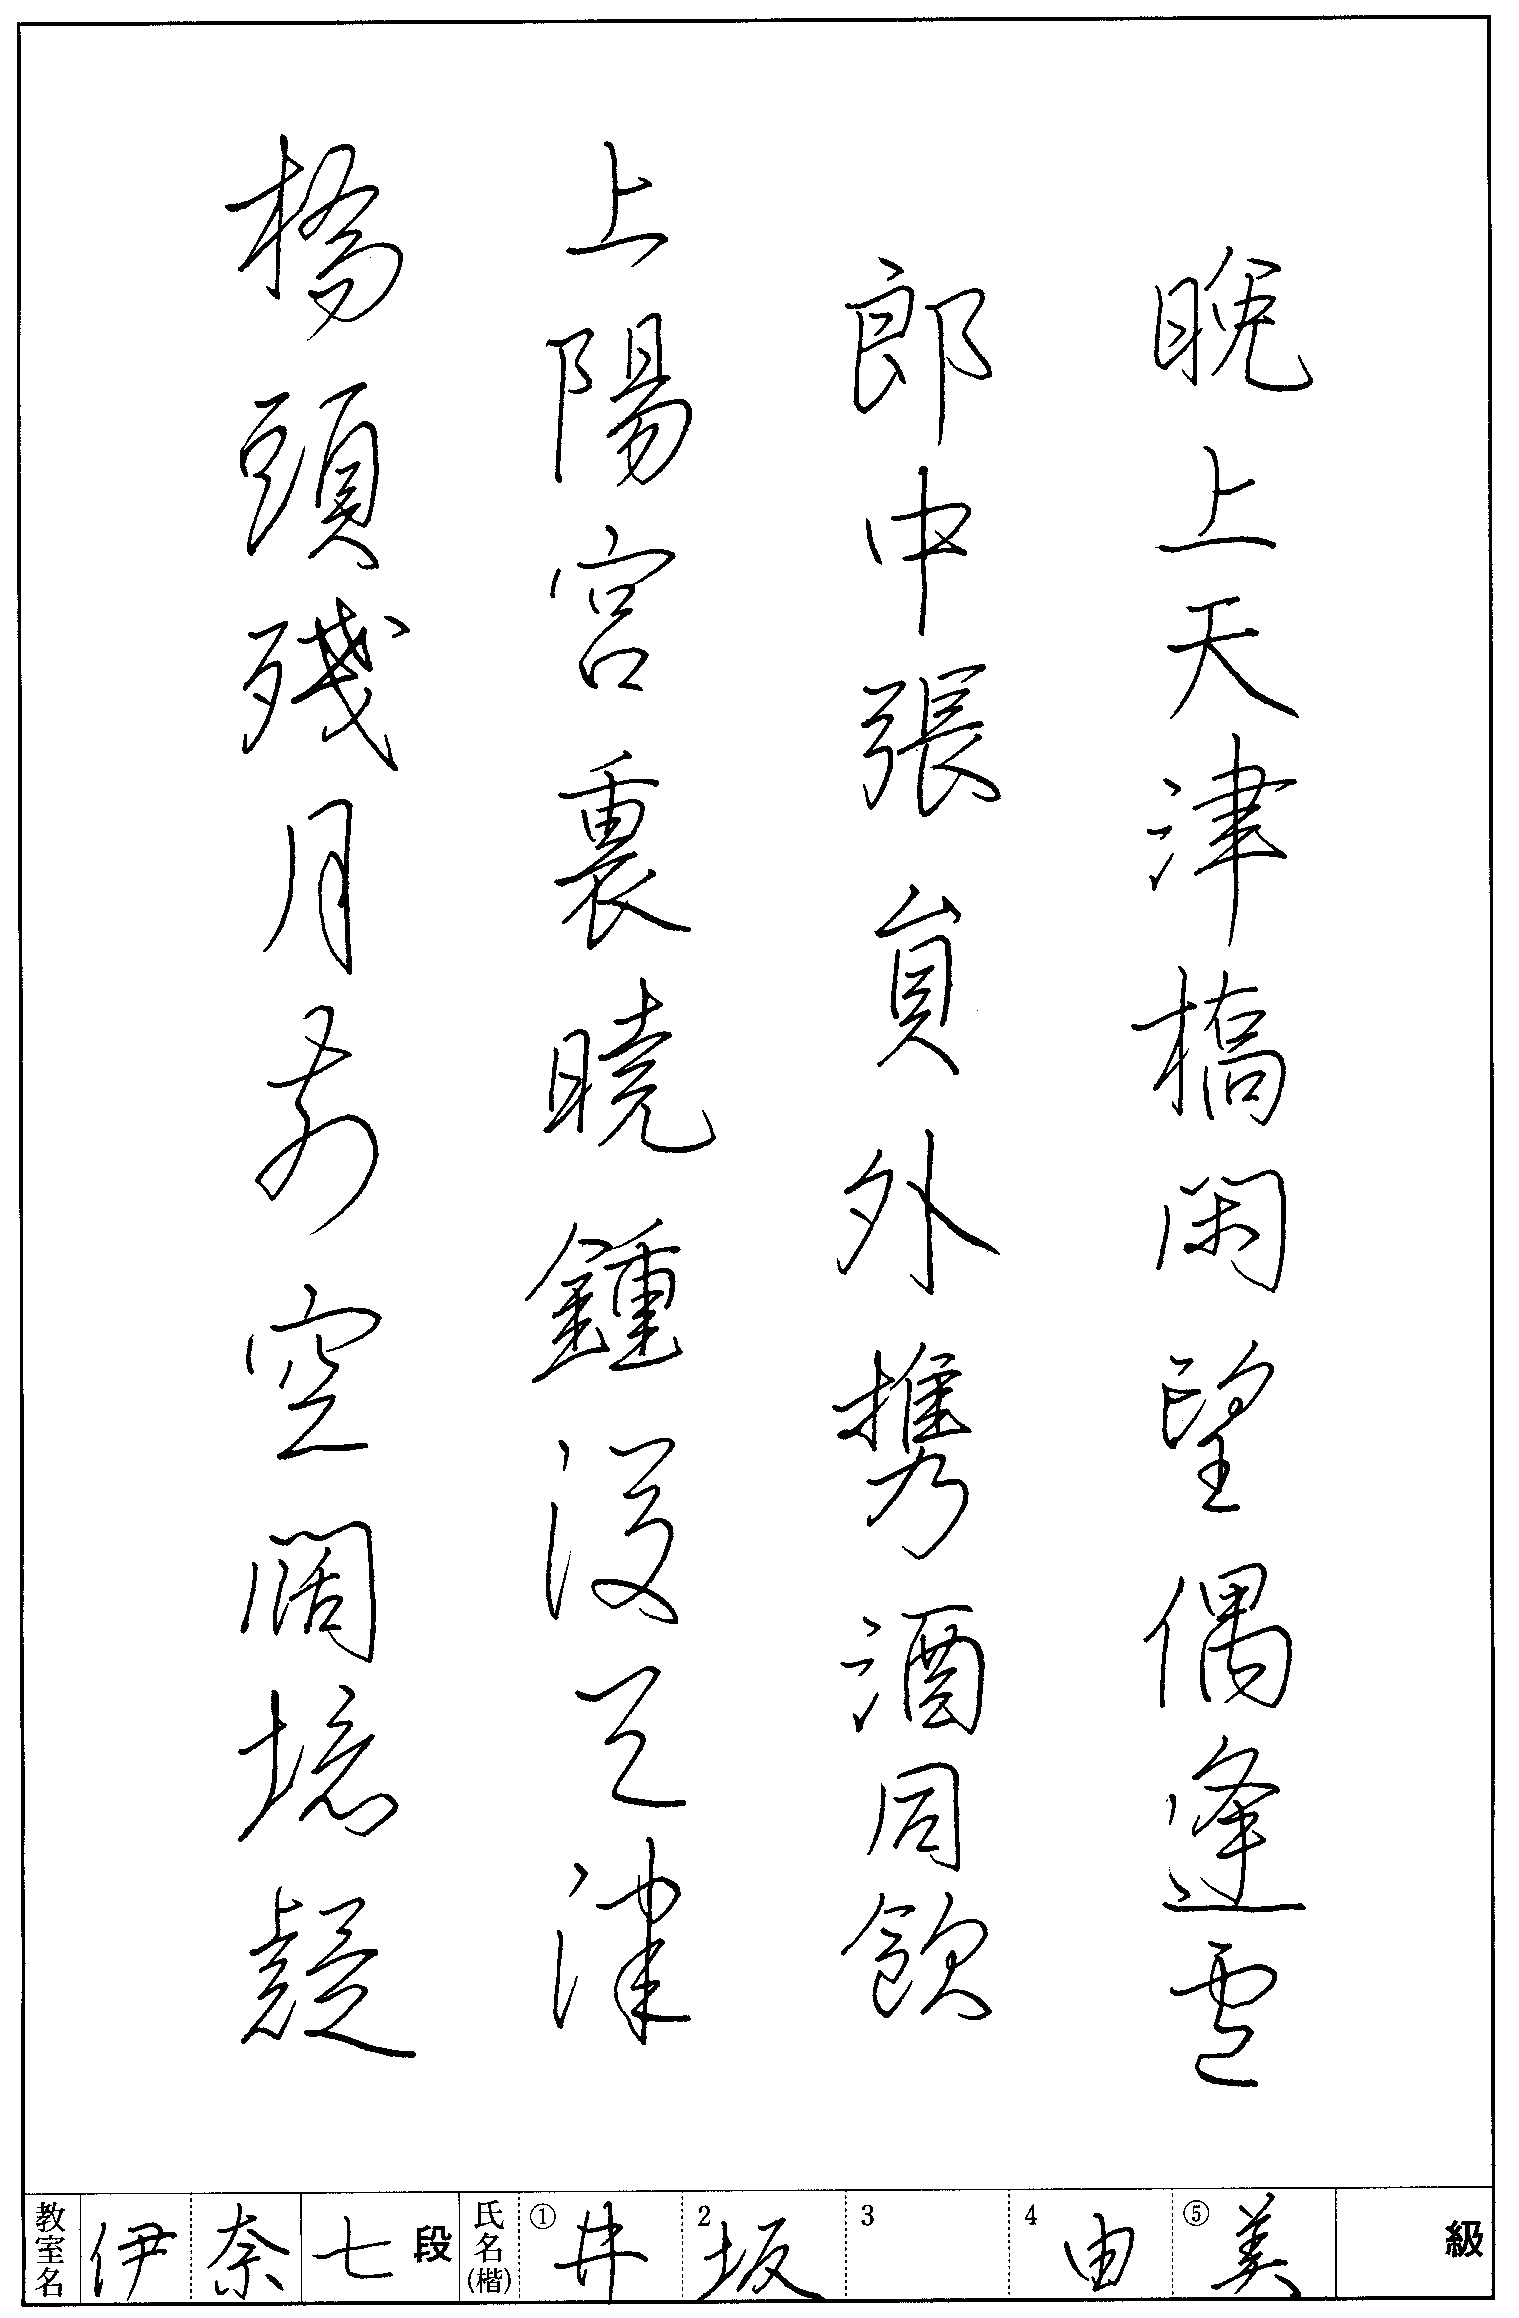 晩上天津橋閑望偶逢盧
郎中張員外携酒同飲
上陽宮裏暁鍾後天津
橋頭殘月前空闊境疑
教室名 伊奈 七段 氏名(楷) ①井 2坂 3 4由 ⑤美 級